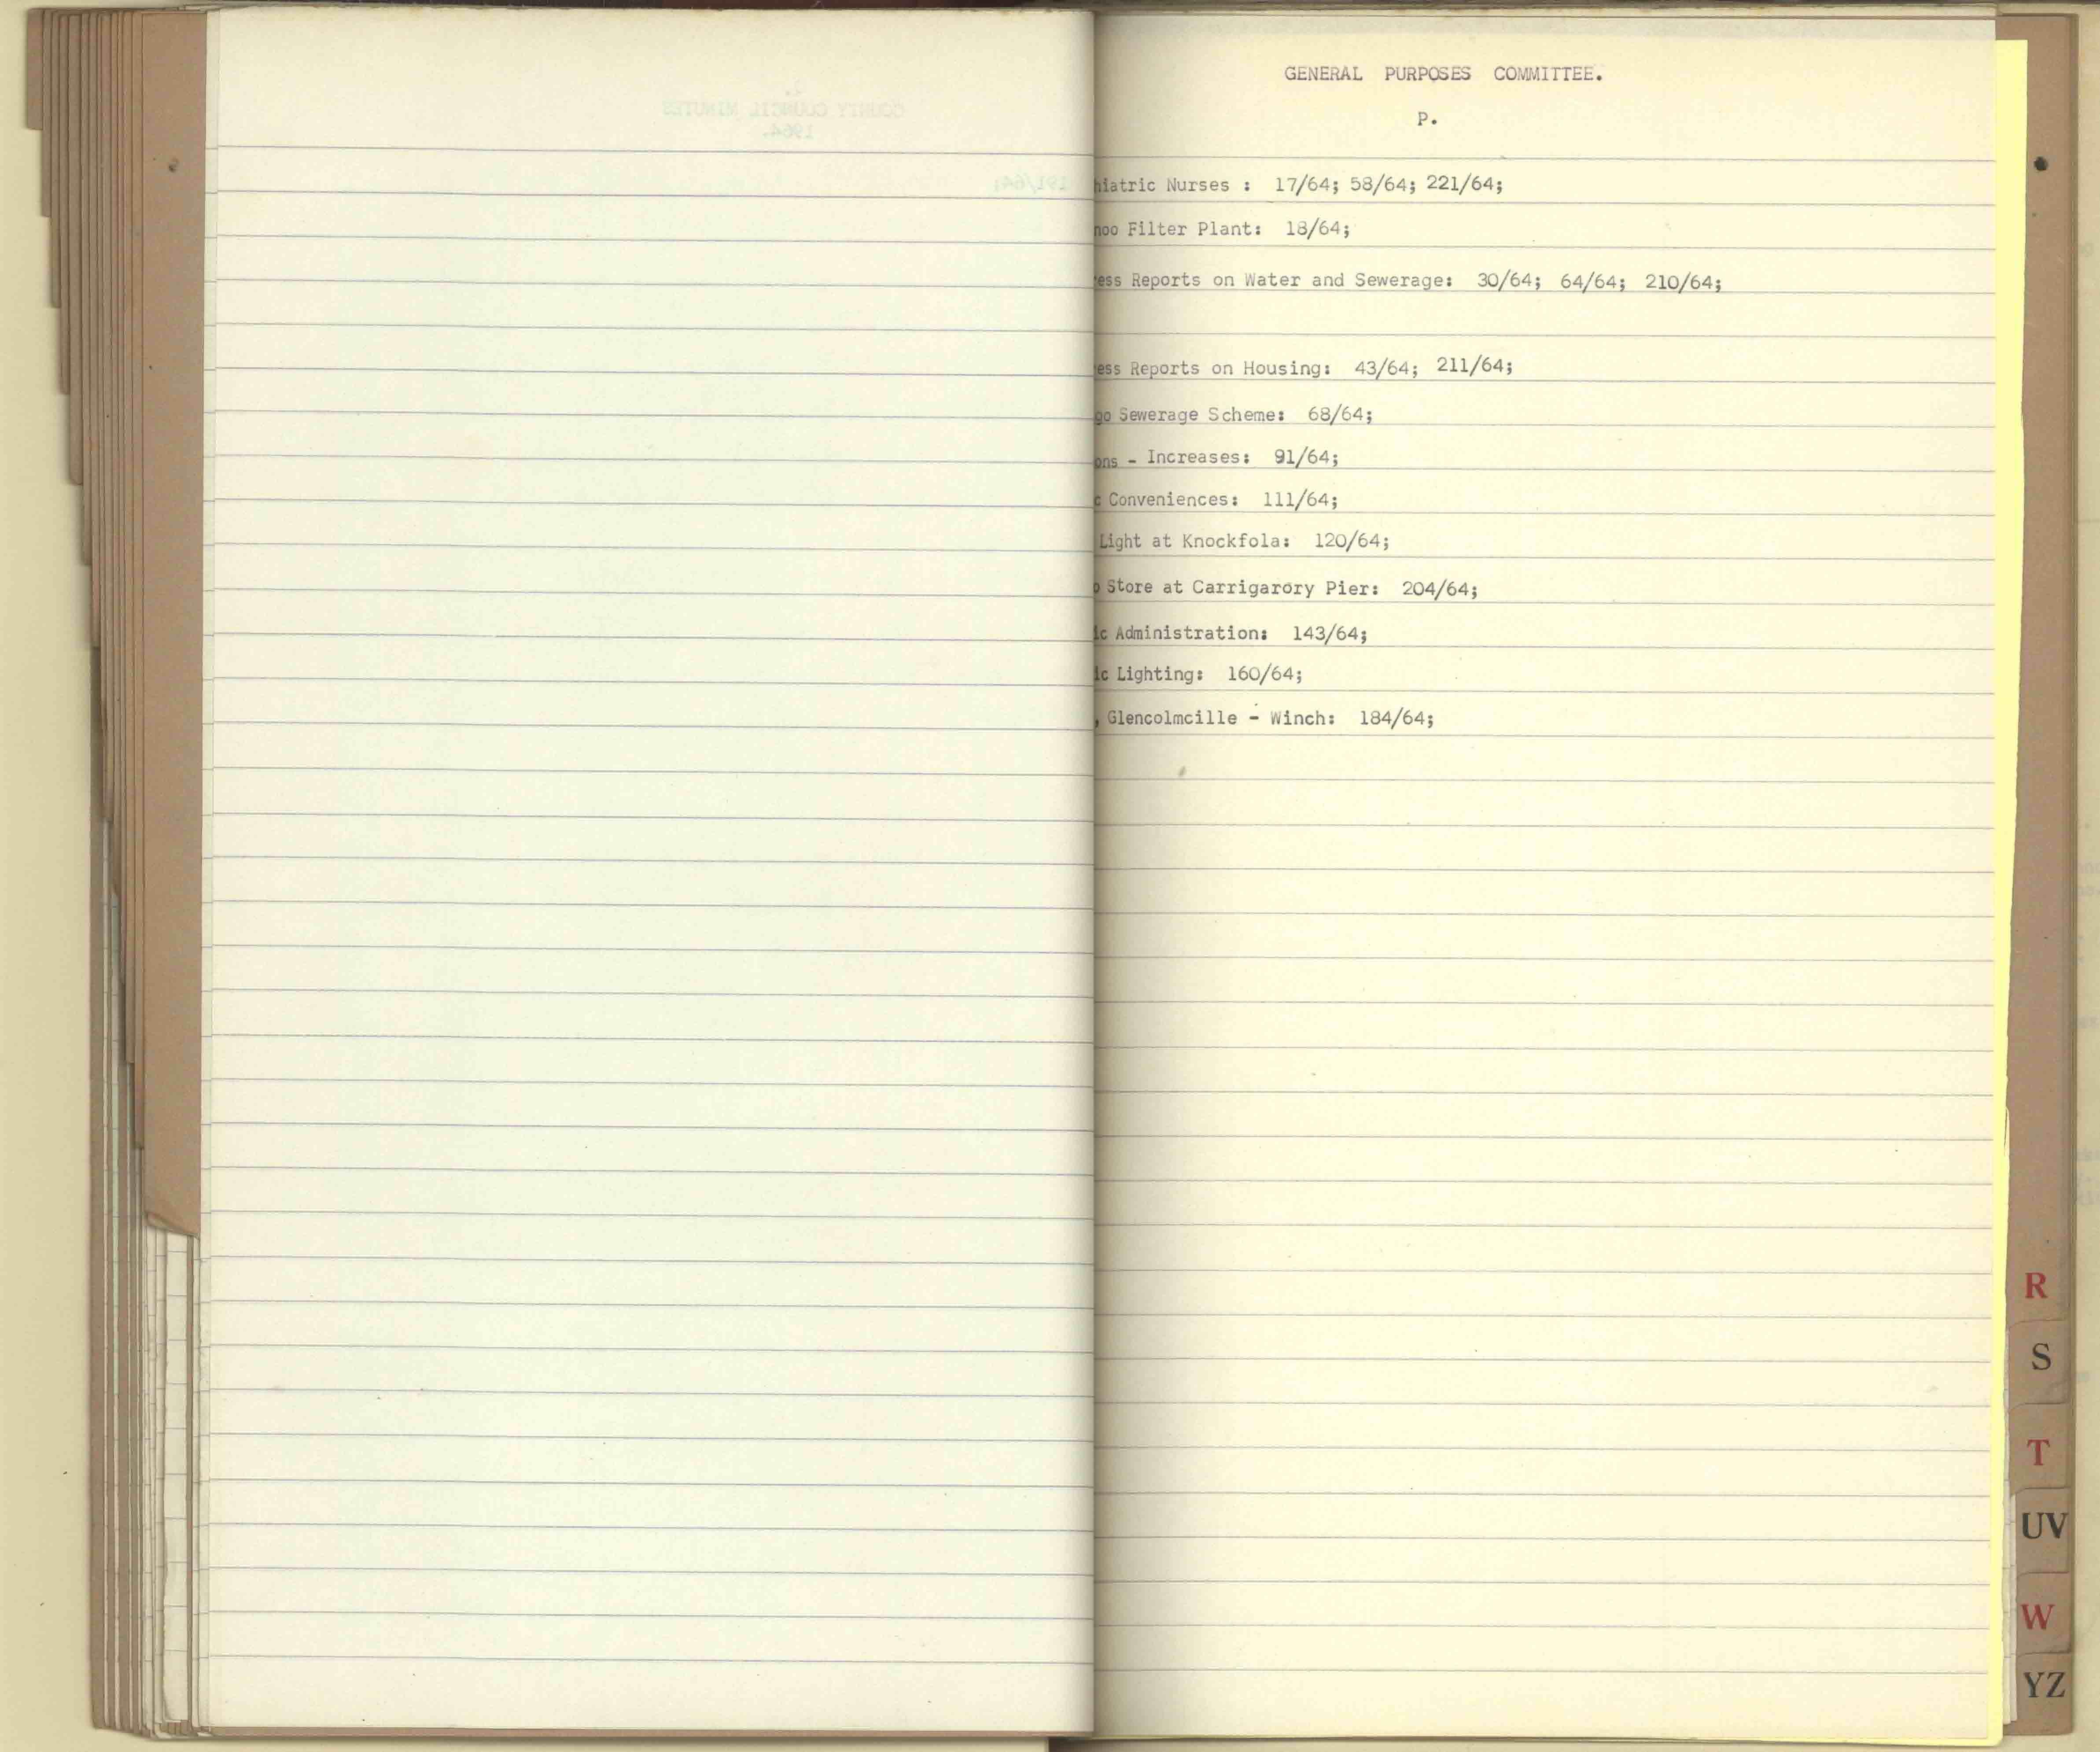 COUNTY COUNCIL MINUTES
1964.
191/64;
GENERAL PURPOSES COMMITTEE.
P.
hiatric Nurses : 17/64; 58/64; 221/64;
noo Filter Plant: 18/64;
ess Reports on Water and Sewerage: 30/64; 64/64; 210/64;
ess Reports on Housing: 43/64; 211/64;
go Sewerage Scheme: 68/64;
ons - Increases: 91/64;
c Conveniences: 111/64;
Light at Knockfola: 120/64;
o Store at Carrigarory Pier: 204/64;
ic Administration: 143/64;
ic Lighting: 160/64;
, Glencolmcille - Winch: 184/64;
R
S
T
UV
W
YZ